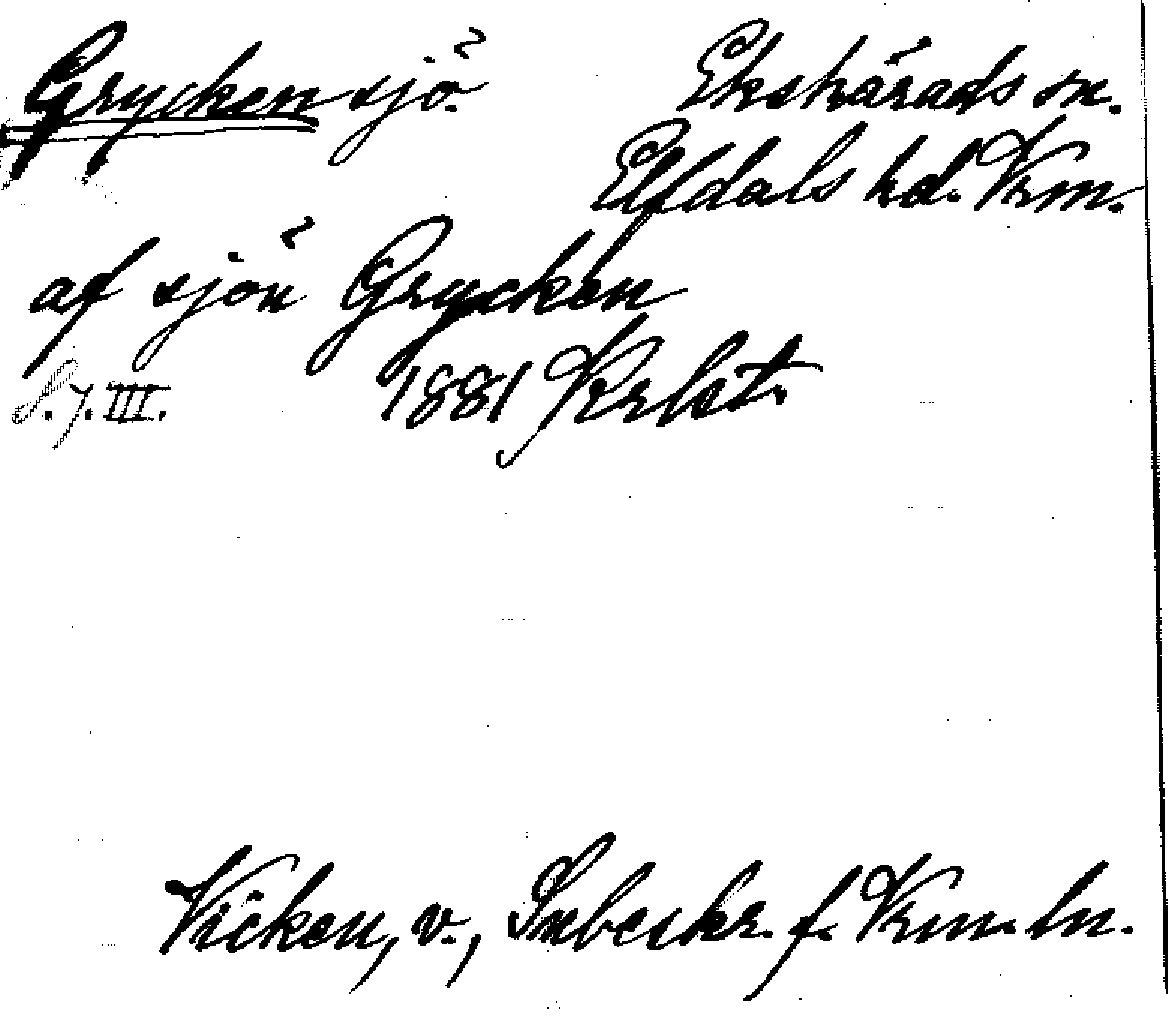 Grycken sjö Ekshärads sn.
Elfdals hd. Vrm.
af sjön Grycken
S. J. III. 1881 Krlst.
Kicken, v., Snbeskr. f. Vrm. ln.